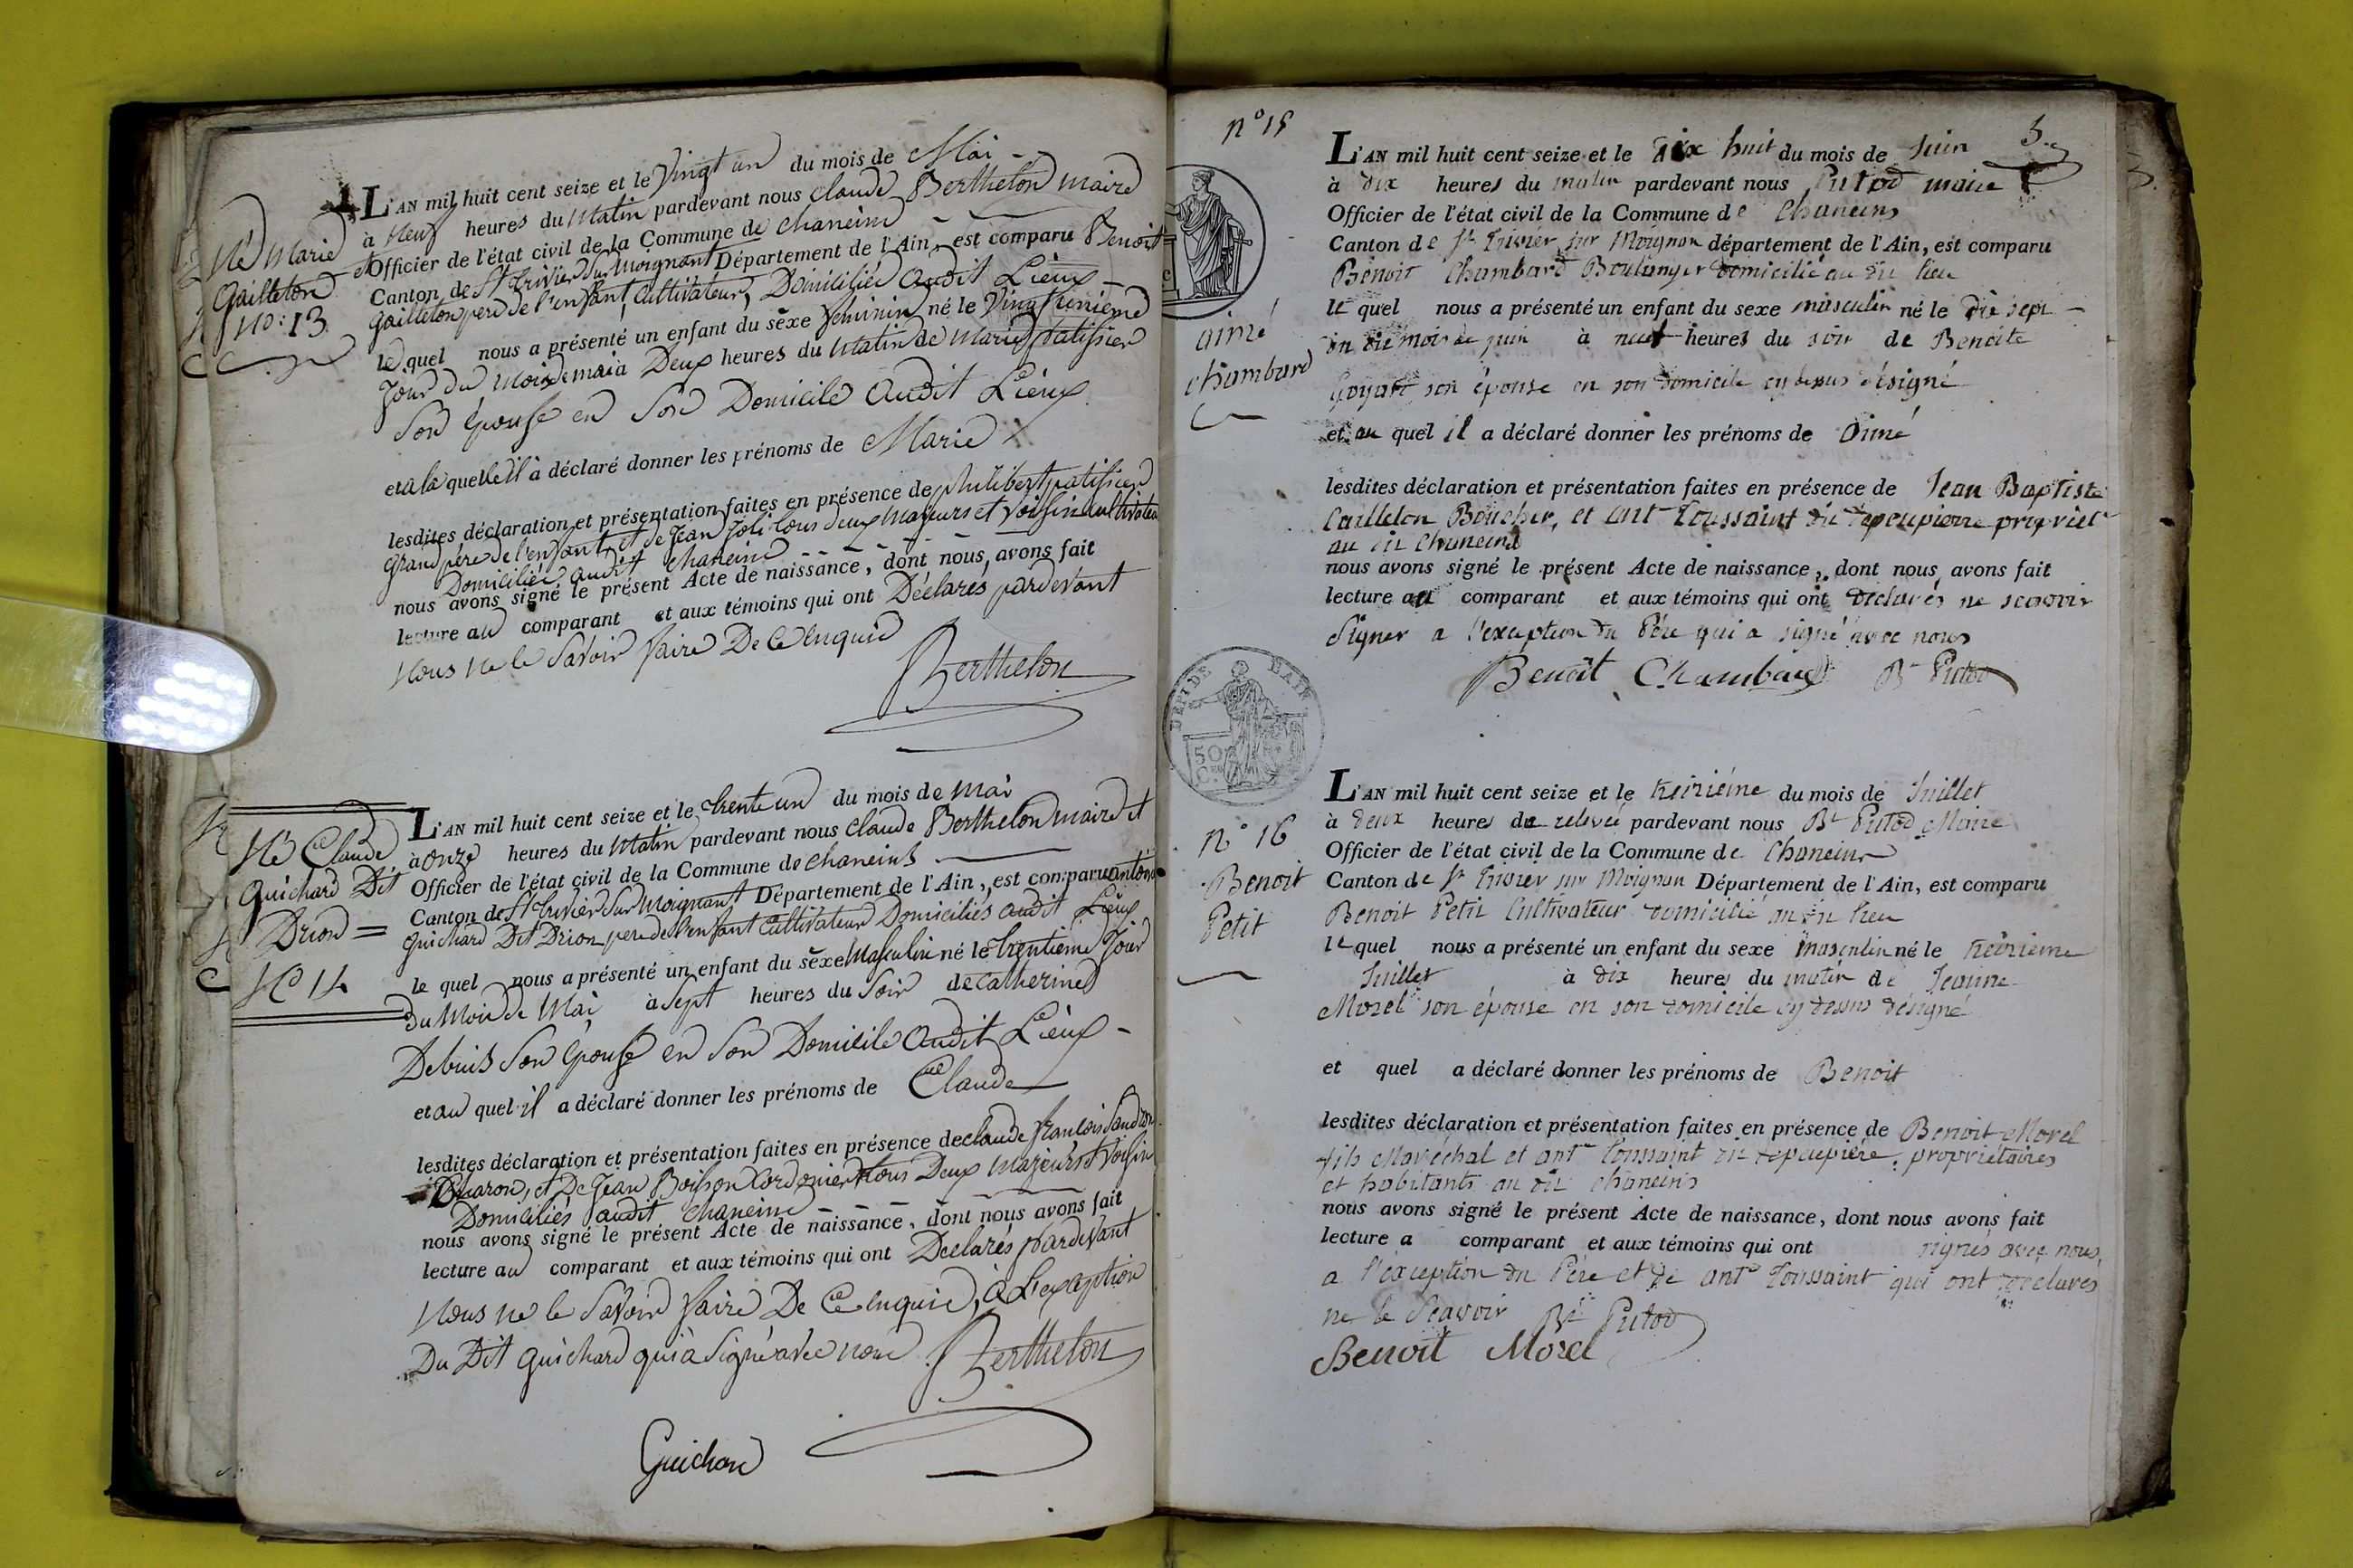 Né Marie
Gailleton
No: 13
L'AN mil huit cent seize et le Vingt un du mois de Mai
à Neuf heures du Matin pardevant nous Claude Berthelon maire
et Officier de l'état civil de la Commune de chaneins
Canton de St trivier Sur Moignant Département de l'Ain, est comparu Benoit
Gailleton pere de l'enfant Cultivateur, Domicilié Audit Lieux
le quel nous a présenté un enfant du sexe feminin né le Vingt unième
Jour du Mois de mai à Deux heures du Matin de Marie patissier
Son Epouse en Son Domicile Audit Lieux
et à la quelle il a déclaré donner les prénoms de Marie
lesdites déclaration et présentation faites en présence de philibert patissier
Grand pére de l'enfant, et de Jean Joli tous deux Majeurs et Voisin Cultivateur
Domiciliés audit chaneins
nous avons signé le présent Acte de naissance, dont nous avons fait
lecture au comparant et aux témoins qui ont Déclarés pardevant
Nous ne le Savoir faire De Ce Enquis
Berthelon
Né Claude
Guichard Dit
Drion
No 14
L'AN mil huit cent seize et le trente un du mois de Mai
à onze heures du Matin pardevant nous Claude Berthelon maire et
Officier de l'état civil de la Commune de chaneins
Canton de St trivier Sur Moignant Département de l'Ain, est comparu antoine
Guichard Dit Drion pere de l'enfant Cultivateur Domiciliés audit Lieux
le quel nous a présenté un enfant du sexe Masculin né le trentieme Jour
du Mois de Mai à Sept heures du Soir de catherine
Debuis Son Epouse en Son Domicile Audit Lieux
et au quel il a déclaré donner les prénoms de Claude
lesdites déclaration et présentation faites en présence de claude francois
Charon, et De Jean Boisson Cordonier tous Deux Majeurs et Voisin
Domiciliés audit chaneins
nous avons signé le présent Acte de naissance, dont nous avons fait
lecture au comparant et aux témoins qui ont Déclarés pardevant
Nous ne le Savoir faire De Ce enquis, à L'exception
Du Dit Guichard qui à Signé avec nous Berthelon
Guichard
3.
n° 15
aimé
chambard
L'AN mil huit cent seize et le dix huit du mois de Juin
à dix heures du matin pardevant nous Putod maire
Officier de l'état civil de la Commune de Chaneins
Canton de St Trivier sur Moignan département de l'Ain, est comparu
Benoit Chambard Boulanger domicilié au dit lieu
le quel nous a présenté un enfant du sexe masculin né le dix sept
du dit mois de juin à neuf heures du soir de Benoite
Goyat son épouse en son domicile cy dessus désigné
et au quel il a déclaré donner les prénoms de aimé
lesdites déclaration et présentation faites en présence de Jean Baptiste
Cailleton Boucher, et ant Toussaint dit propriet
au dit Chaneins
nous avons signé le présent Acte de naissance, dont nous avons fait
lecture au comparant et aux témoins qui ont déclarés ne scavoir
Signer a l'exception du Père qui a signé avec nous
Benoit Chambard Bt Putod
DEP.T DE L'AIN
50
C.ES
n° 16
Benoit
Petit
L'AN mil huit cent seize et le treizième du mois de Juillet
à deux heures de relevée pardevant nous Bt Putod Maire
Officier de l'état civil de la Commune de Chaneins
Canton de St Trivier sur Moignan Département de l'Ain, est comparu
Benoit Petit Cultivateur domicilié au dit lieu
le quel nous a présenté un enfant du sexe masculin né le treizieme
Juillet à dix heures du matin de Jeanne
Morel son épouse en son domicile cy dessus désigné
et quel a déclaré donner les prénoms de Benoit
lesdites déclaration et présentation faites en présence de Benoit Morel
fils Maréchal et ant Toussaint dit propriétaires
et habitants au dit chaneins
nous avons signé le présent Acte de naissance, dont nous avons fait
lecture a comparant et aux témoins qui ont signés avec nous
a l'exception du Père et de ant Toussaint qui ont déclarés
ne le Scavoir Bt Putod
Benoit Morel